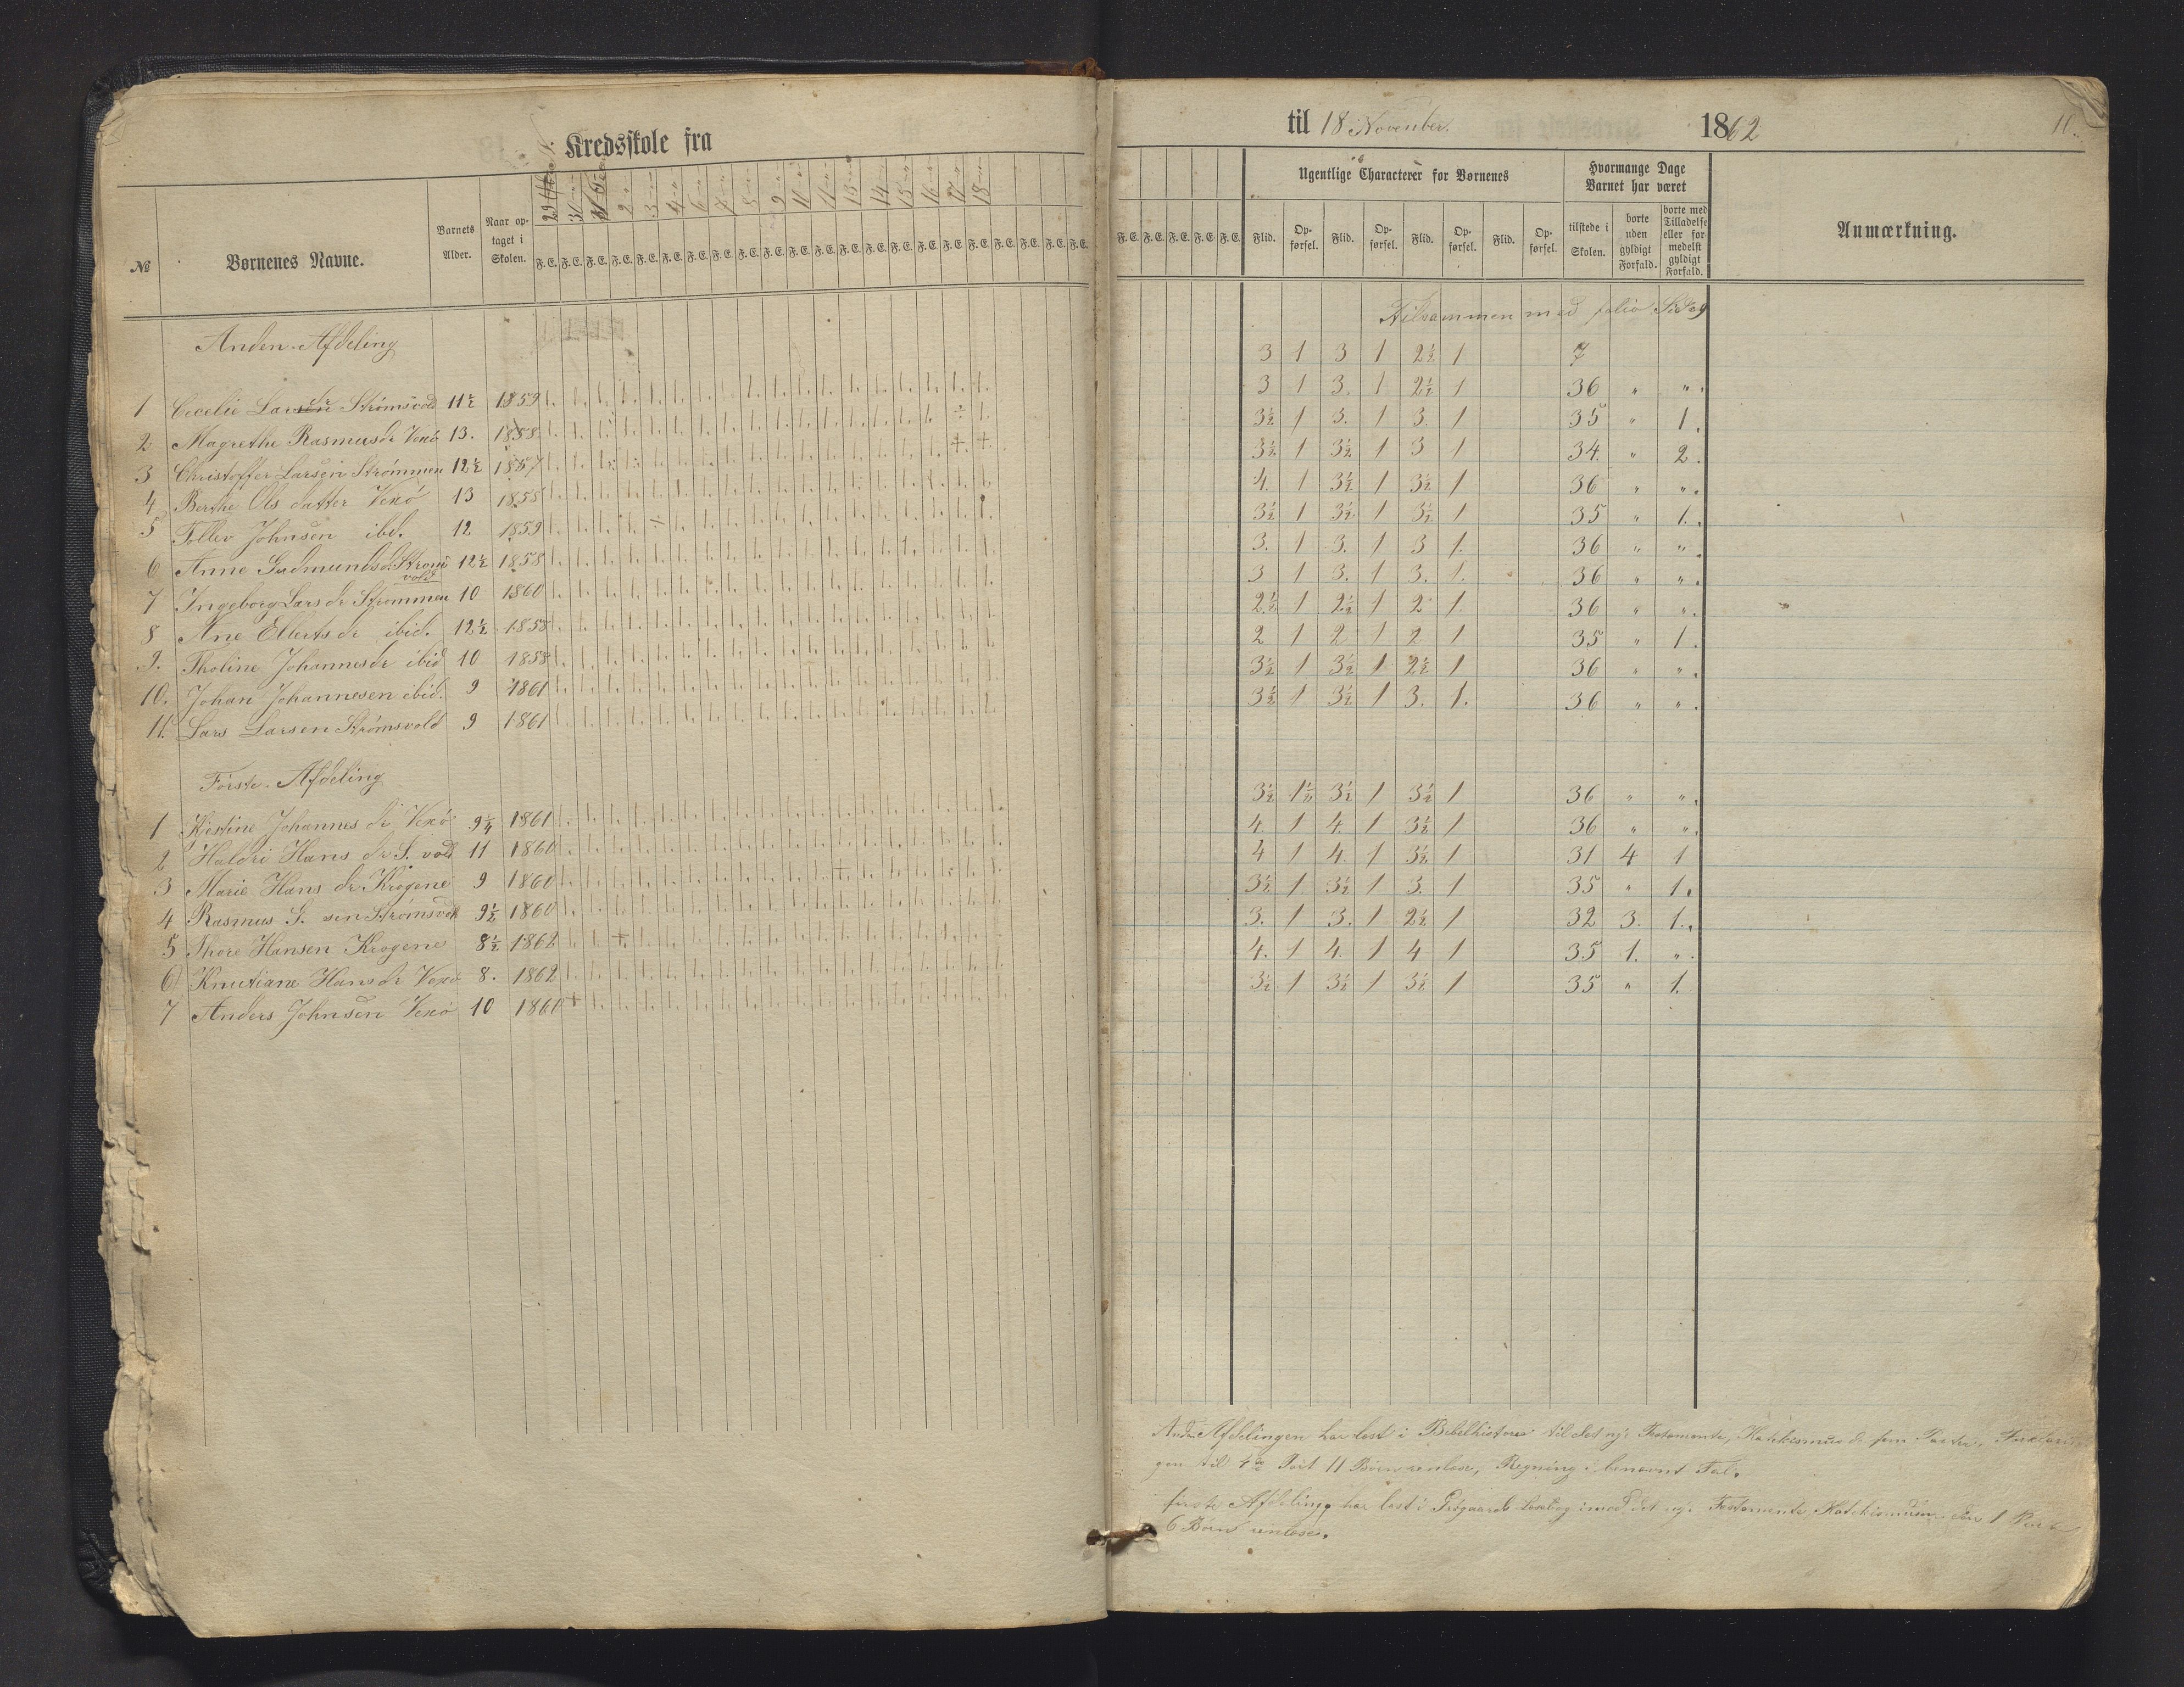 Kredsskole fra
til 18 November. 1862
№ Børnenes Navne. Barnets Alder. Naar optaget i Skolen.
31 2 3 4 6 7 8 9 10 11 13 14 15 16 17 18
F.E. F.E. F.E. F.E. F.E. F.E. F.E. F.E. F.E. F.E. F.E. F.E. F.E. F.E. F.E. F.E. F.E. F.E. F.E. F.E. F.E. F.E.
F.E. F.E. F.E. F.E. F.E.
Ugentlige Characterer for Børnenes
Flid. Opførsel. Flid. Opførsel. Flid. Opførsel. Flid. Opførsel.
Hvormange Dage Barnet har været
tilstede i Skolen. borte uden gyldigt Forfald. borte med Tilladelse eller formedelst gyldigt Forfald.
Anmærkning.
Tilsammen med folio Side 9
Anden Afdeling
3 1 3 1 2½ 1 7
1 Cecelie Larsdr Strømsvold 11½ 1859 3 1 3. 1 2½ 1 36 " "
2 Magrethe Rasmusdr Vexø 13. 1858 3½ 1 3. 1 3. 1 35 " 1.
3 Christoffer Larsen Strømmen 12½ 1857 3½ 1 3½ 1 3 1 34. " 2.
4 Berthe Ols datter Vexø 13 1855 4. 1 3½ 1 3½ 1 36 " "
5 Tollev Johnsen ibd. 12 1859 3½ 1 3½ 1 3½ 1 35 " 1.
6 Anne Gudmundsd. Strømsvold 12½ 1858 3. 1 3. 1 3 1. 36 " "
7 Ingeborg Lars dr Strømmen 10 1860 3 1 3. 1 3. 1. 36 " "
8 Ane Ellertsdr ibid. 12½ 1858 2½ 1 2½ 1 2 1 36 " "
9. Tholine Johannesdr ibid 10 1858 2 1 2 1 2 1 35 " 1.
10. Johan Johannesen ibid. 9 1861 3½ 1 3½ 1 2½ 1 36 " "
11. Lars Larsen Strømsvold 9 1861 3½ 1 3½ 1 3. 1. 36 " "
Første Afdeling
1 Kjestine Johannes dr Vexø 9¼ 1861 3½ 1½ 3½ 1 3½ 1 36 " "
2 Haldri Hans dr S. vold 11 1860 4. 1 4. 1 3½ 1 36 " "
3 Marie Hans dr Krogene 9 1860 4 1 4. 1 3½ 1 31 4 1
4 Rasmus G. sen Strømsvold 9½ 1860 3½ 1 3½ 1 3. 1 35 " 1.
5 Thore Hansen Krogene 8½ 1862 3. 1 3. 1 2½ 1 32 3. 1.
6 Knutiane Hansdr Vexø 8. 1862 4. 1 4. 1 4 1 35 1. "
7 Anders Johnsen Vexø 10 1860 3½ 1 3½ 1 3½ 1 35 " 1.
Afdelingen har læst i Bibelhistorie til det nye Testamente,
gen til 4de Part 11 Børn renlæse, Regning i benævnt Tal.
første Afdeling har læst i Læsebog det nye Testamente 1 Part
6 Børn renlæse.